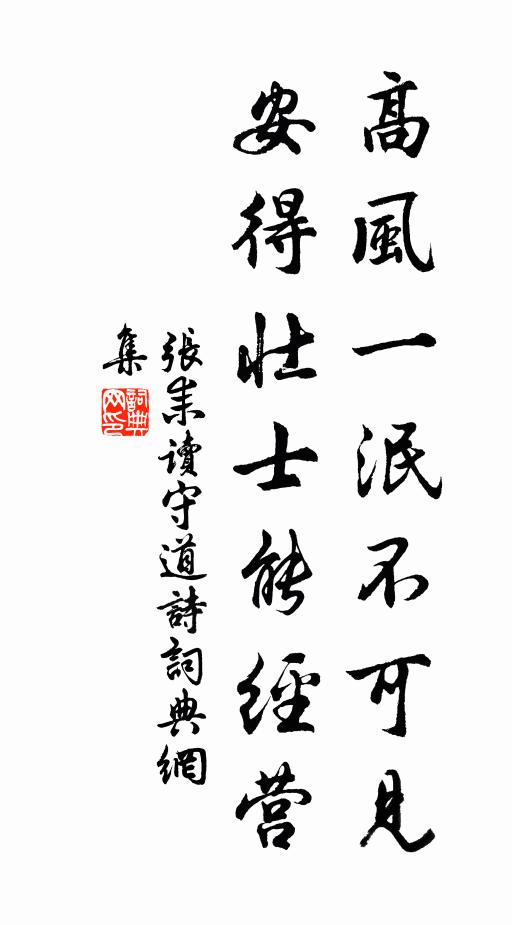 高風一泯不可見
安得壯士能經营
張耒讀守道詩詞典網
集
詞典
网印